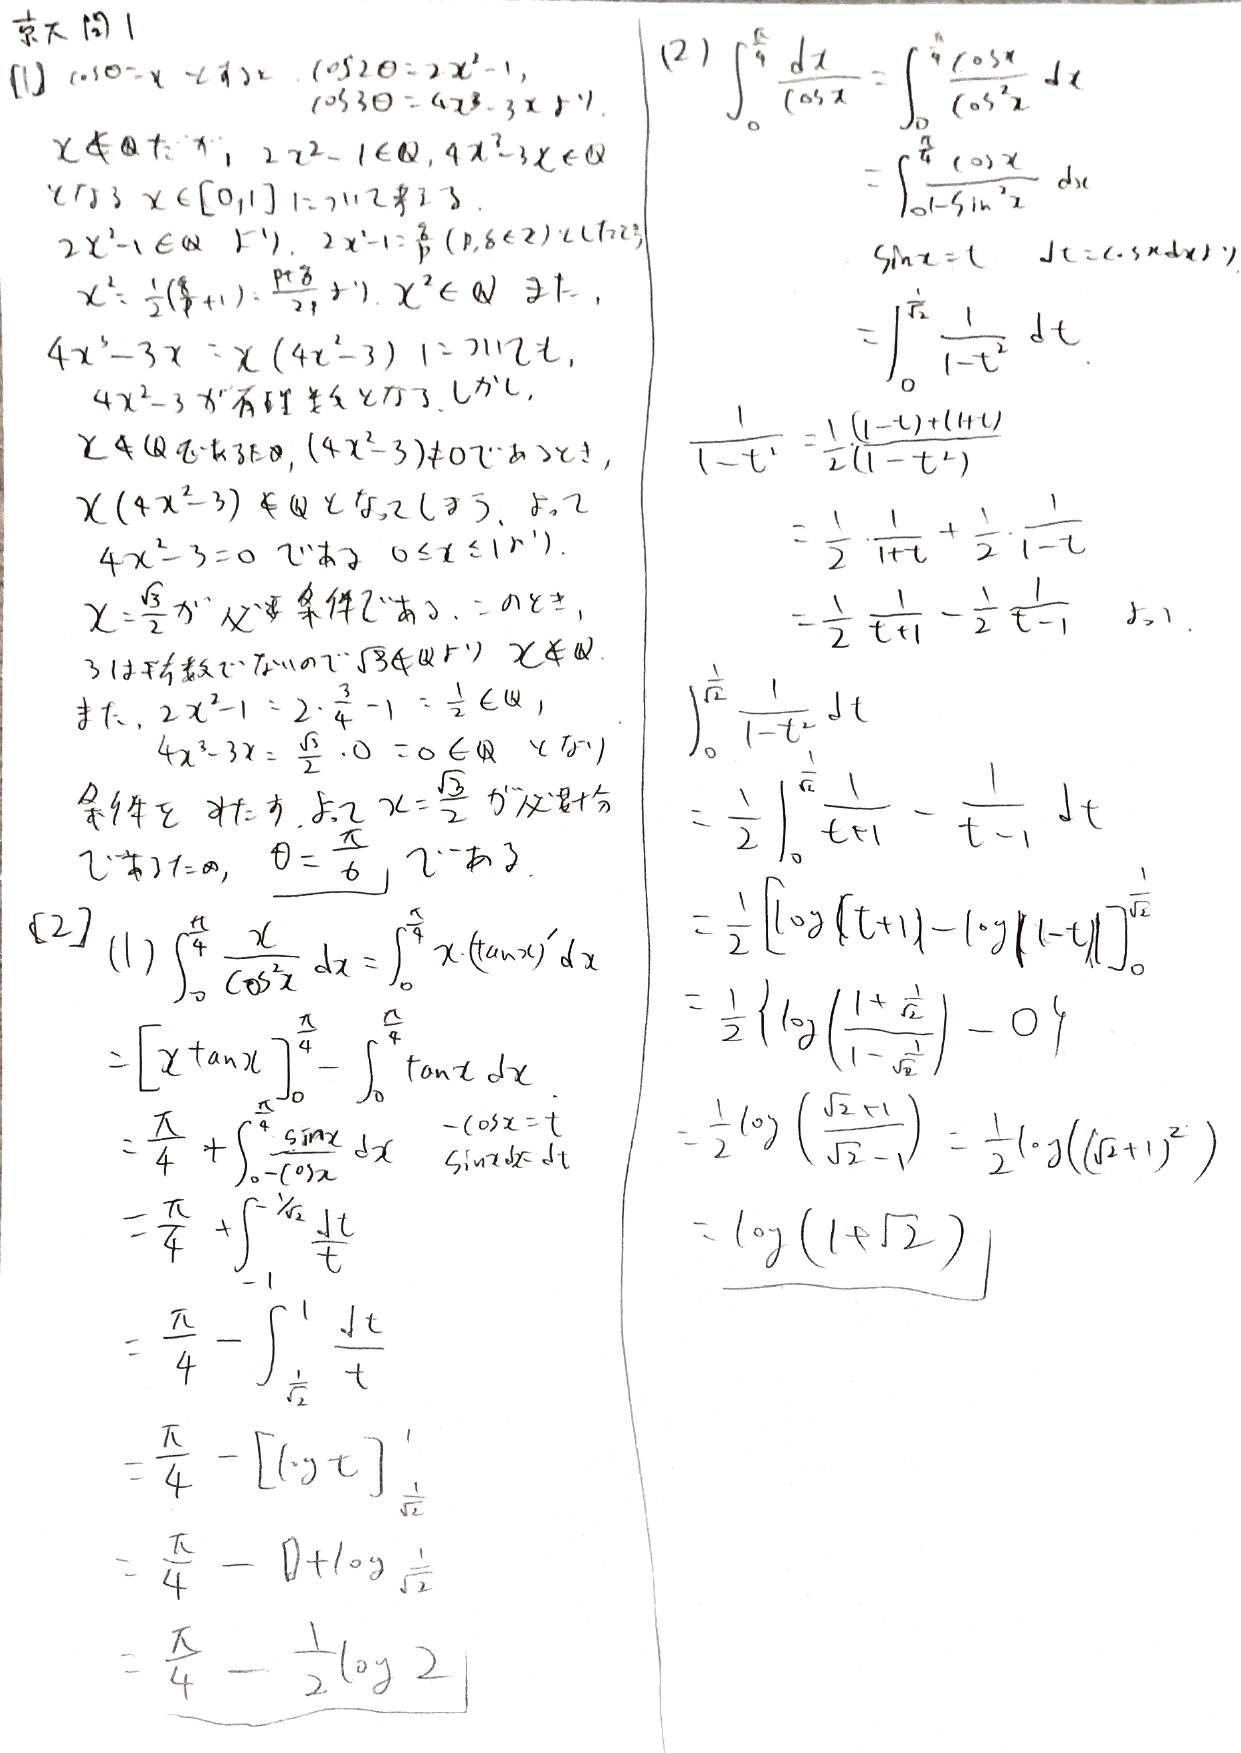 京大 問1
[1] cosθ=x とすると cos2θ=2x²-1,
cos3θ=4x³-3xより.
x∉Qだが, 2x²-1∈Q, 4x³-3x∈Q
となる x∈[0,1] について考える.
2x²-1∈Q より. 2x²-1=q/p (p,q∈Z)としたとき
x²=1/2(q/p+1)=p+q/2p より x²∈Q また,
4x³-3x=x(4x²-3) についても,
4x²-3が有理数となる. しかし,
x∉Qであるため, (4x²-3)≠0であるとき,
x(4x²-3)∉Qとなってしまう. よって
4x²-3=0 である 0≤x≤1より.
x=√3/2 が必要条件である. このとき,
3は平方数でないので√3∉Qより x∉Q.
また, 2x²-1=2・3/4-1=1/2∈Q,
4x³-3x=√3/2・0=0∈Q となり
条件をみたす. よって x=√3/2 が必要十分
であるため, θ=π/6 である.
[2] (1) ∫₀^{π/4} x/cos²x dx=∫₀^{π/4} x・(tanx)′dx
=[x tanx]₀^{π/4}-∫₀^{π/4} tanx dx
=π/4+∫₀^{π/4} sinx/-cosx dx -cosx=t
sinxdx=dt
=π/4+∫_{-1}^{-1/√2} dt/t
=π/4-∫_{1/√2}^{1} dt/t
=π/4-[logt]_{1/√2}^{1}
=π/4-0+log 1/√2
=π/4-1/2 log2
(2) ∫₀^{π/4} dx/cosx=∫₀^{π/4} cosx/cos²x dx
=∫₀^{π/4} cosx/1-sin²x dx
sinx=t dt=cosxdxより
=∫₀^{1/√2} 1/1-t² dt.
1/1-t²=1/2 (1-t)+(1+t)/(1-t²)
=1/2・1/1+t+1/2・1/1-t
=1/2 1/t+1-1/2 1/t-1 よって.
∫₀^{1/√2} 1/1-t² dt
=1/2∫₀^{1/√2} 1/t+1-1/t-1 dt
=1/2[log(t+1)-log(1-t)]₀^{1/√2}
=1/2{log(1+1/√2/1-1/√2)-0}
=1/2 log(√2+1/√2-1)=1/2 log((√2+1)²)
=log(1+√2)